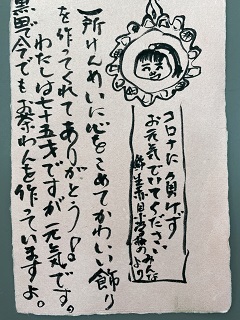 コロナに負けず
お元気でいてください
錦生赤目小学校のみんなより
一所けんめいに心をこめてかわいい飾り
を作ってくれてありがとう♪
わたしは七十五才ですが元気です。
黒田で今でもお茶わんを作っていますよ。